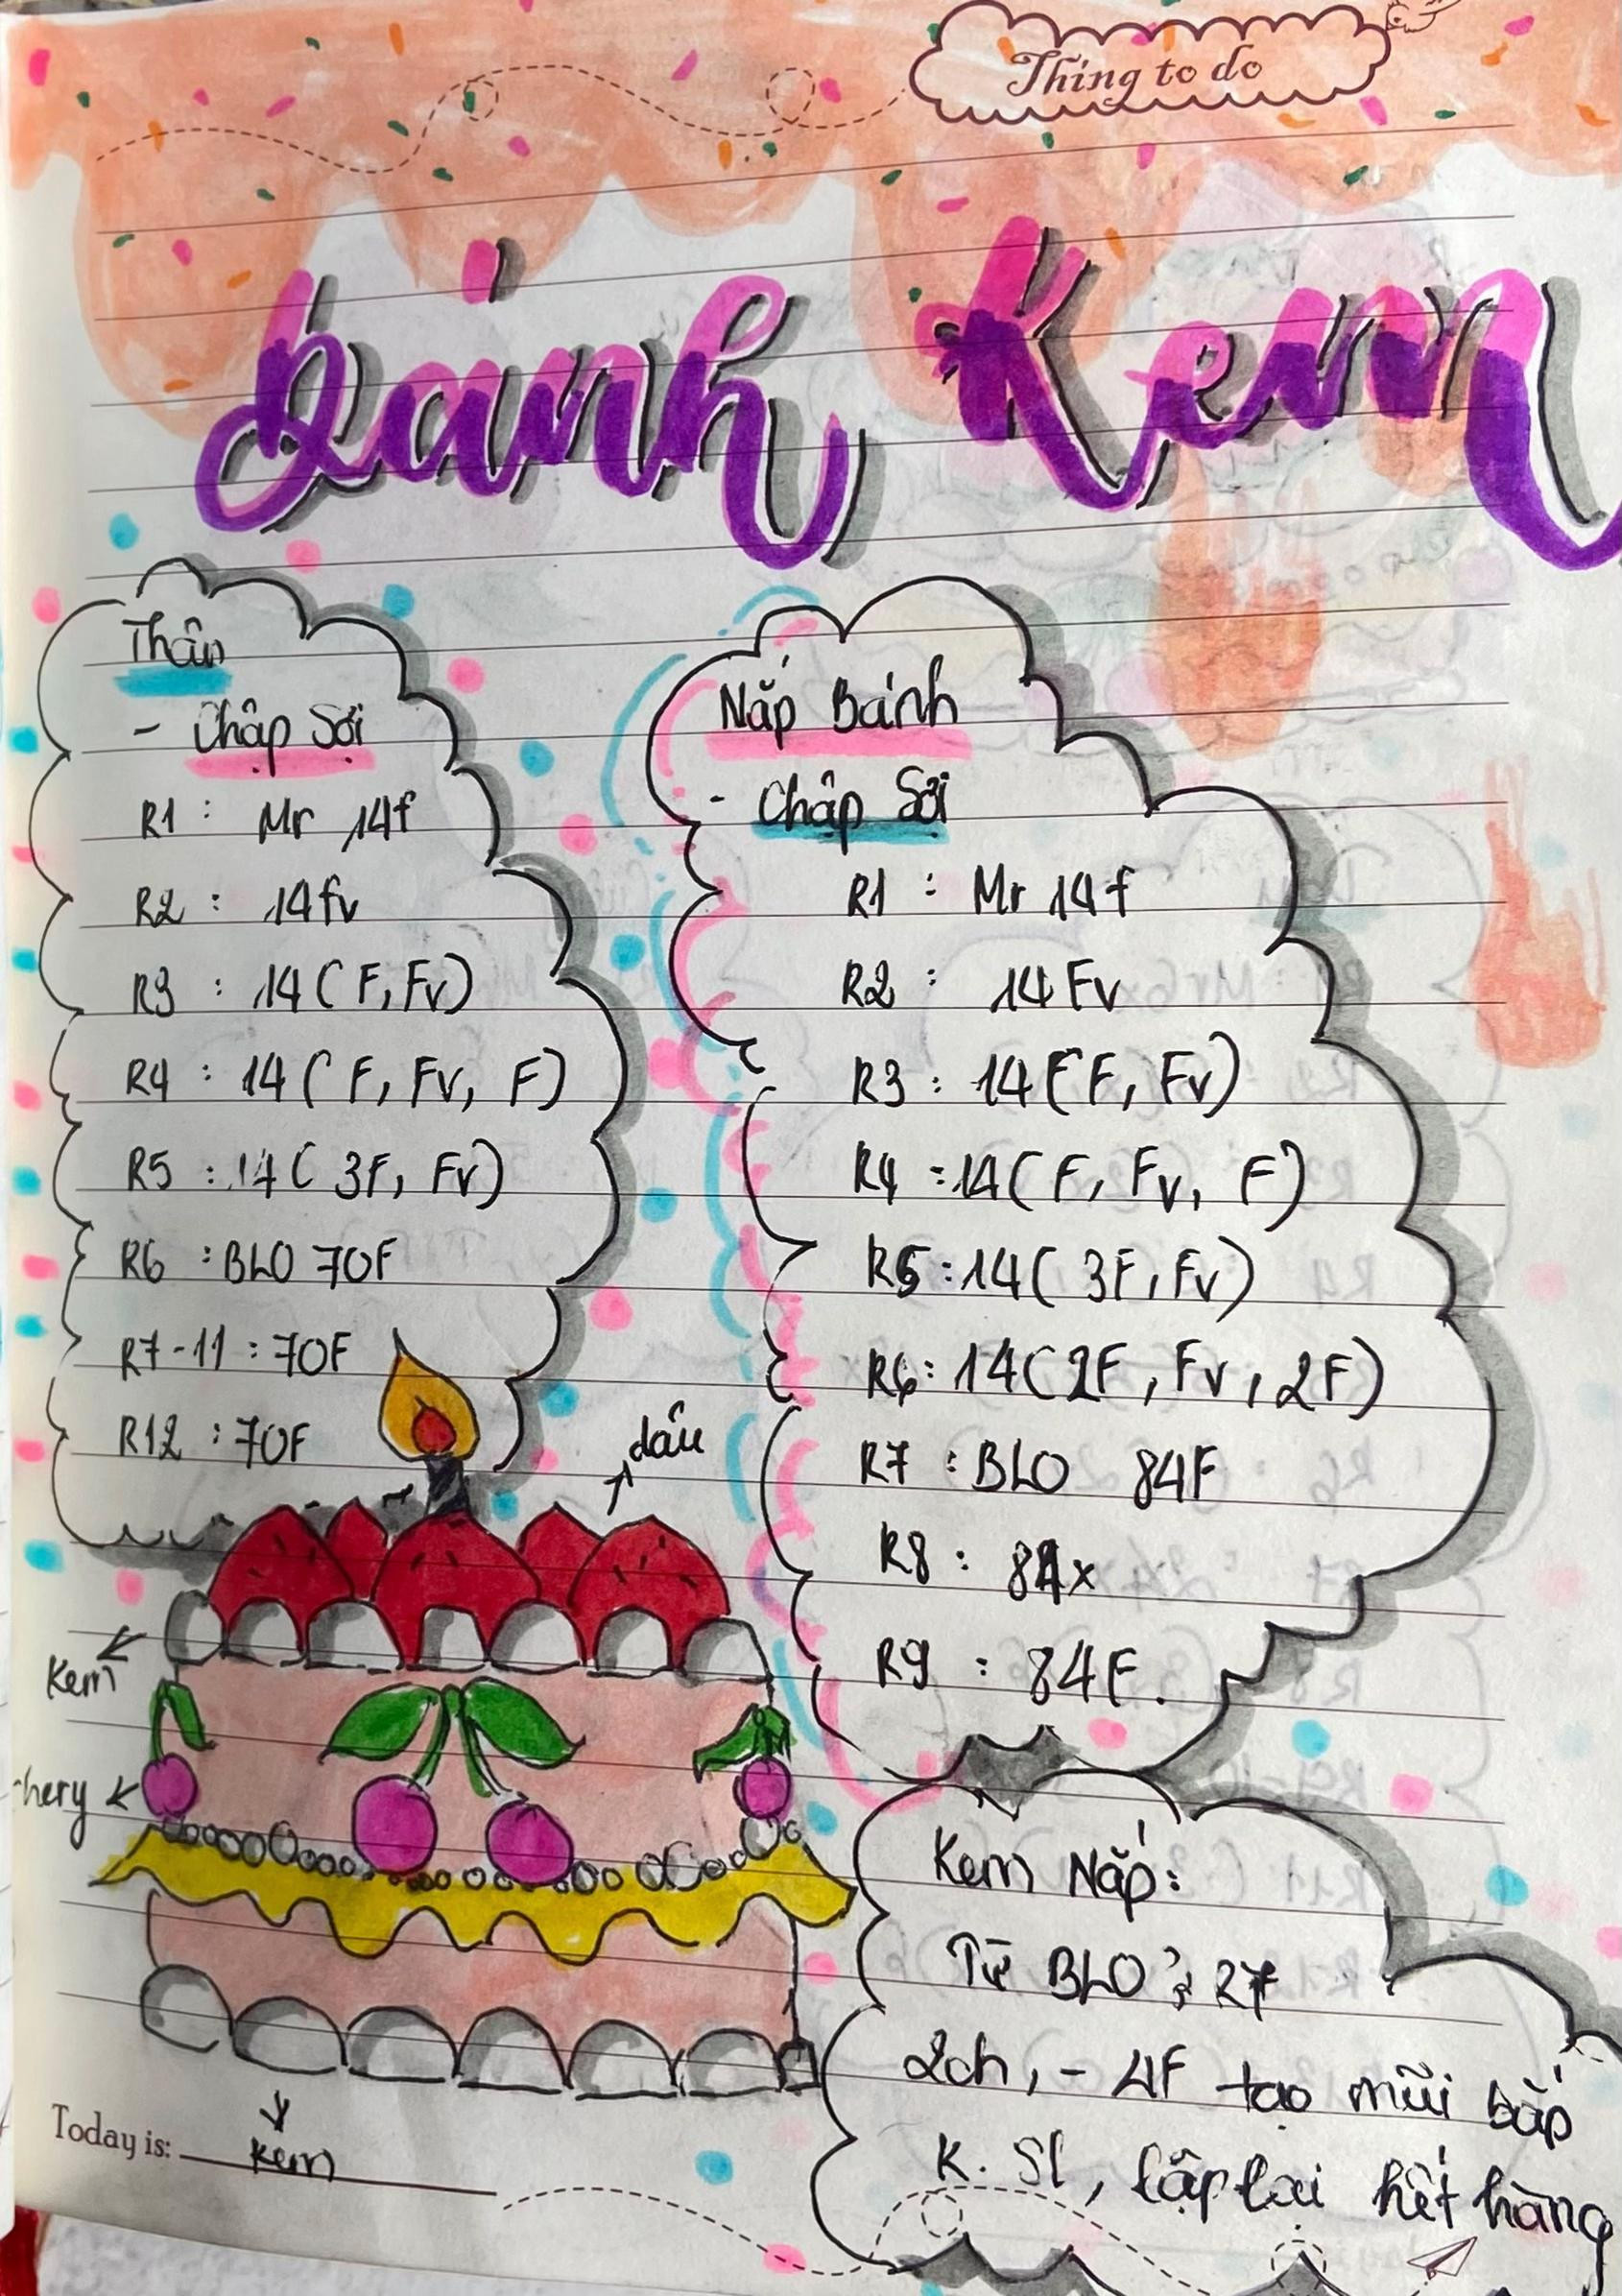 Thing to do
Bánh Kem
Thân
- Chập Sợi
R1 : Mr 14f
R2 : 14fv
R3 : 14( F, Fv)
R4 : 14( F, Fv, F)
R5 : 14( 3F, Fv)
R6 : BLO 70F
R7-11 : 70F
R12 : 70F
Nắp Bánh
- Chập Sợi
R1 : Mr 14f
R2 : 14Fv
R3 : 14( F, Fv)
R4 : 14( F, Fv, F)
R5 : 14( 3F, Fv)
R6 : 14( 2F, Fv, 2F)
R7 : BLO 84F
R8 : 84x
R9 : 84F.
dâu
Kem
hery
Kem
Kem Nắp:
Từ BLO ở R7
2ch, - 4F tạo mũi bắp
K. Sl, lặp lại hết hàng
Today is: